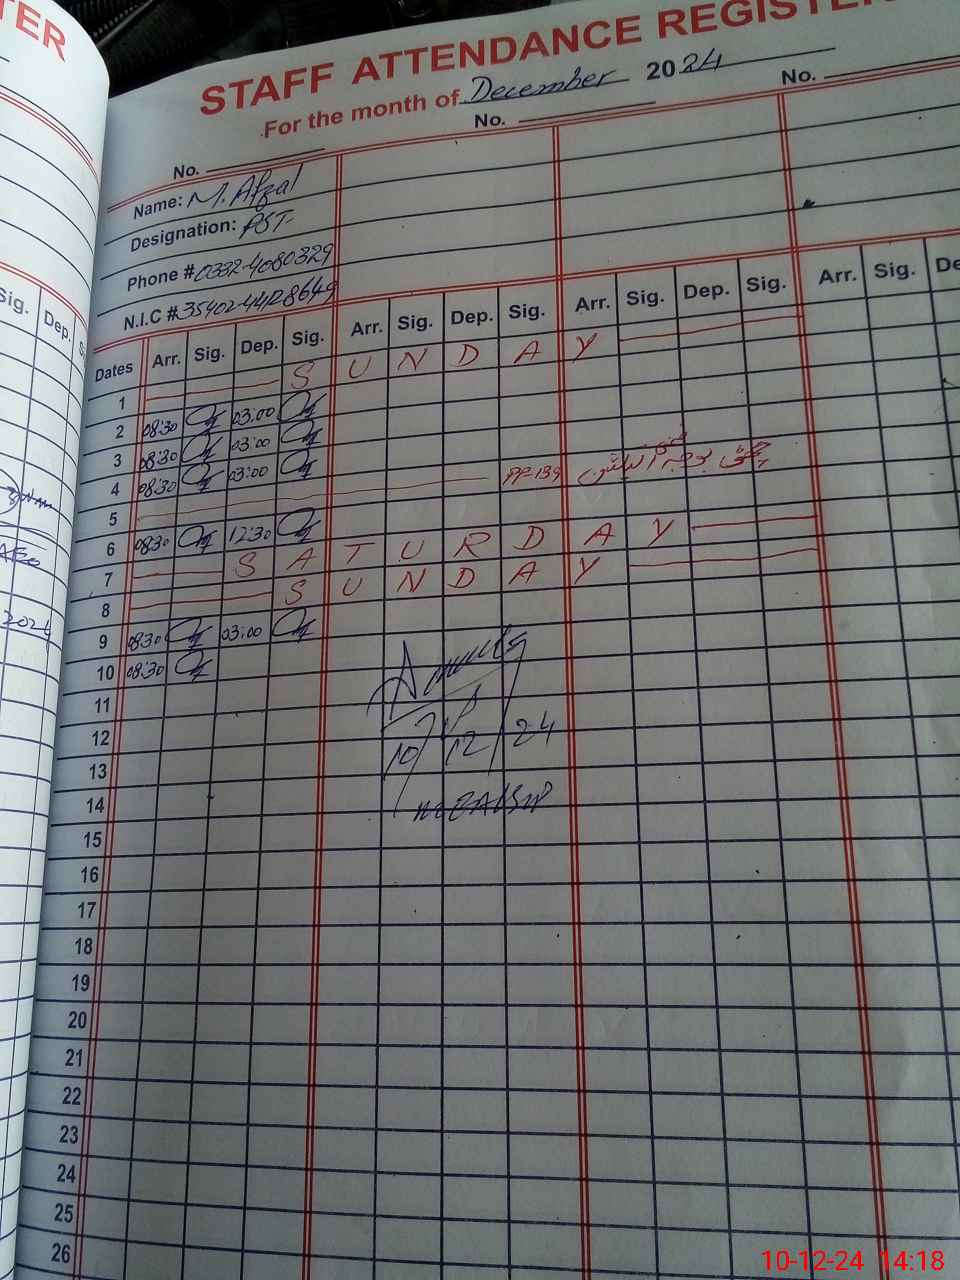 TER
STAFF ATTENDANCE REGISTER
For the month of December 2024
No. No. No.
Name: M. Afzal
Designation: PST
Phone # 0332-4080329
N.I.C #
Sig. Dep.
Dates Arr. Sig. Dep. Sig. Arr. Sig. Dep. Sig. Arr. Sig. Dep. Sig. Arr. Sig. De
1 S U N D A Y
2 08:30 03:00
3 08:30 03:00
4 08:30 03:00
5 PP-139
6 08:30 12:30
7 S A T U R D A Y
8 S U N D A Y
9 08:30 03:00
10 08:30
11
12
10/12/24
13
14
15
16
17
18
19
20
21
22
23
24
25
26
2024
10-12-24 14:18